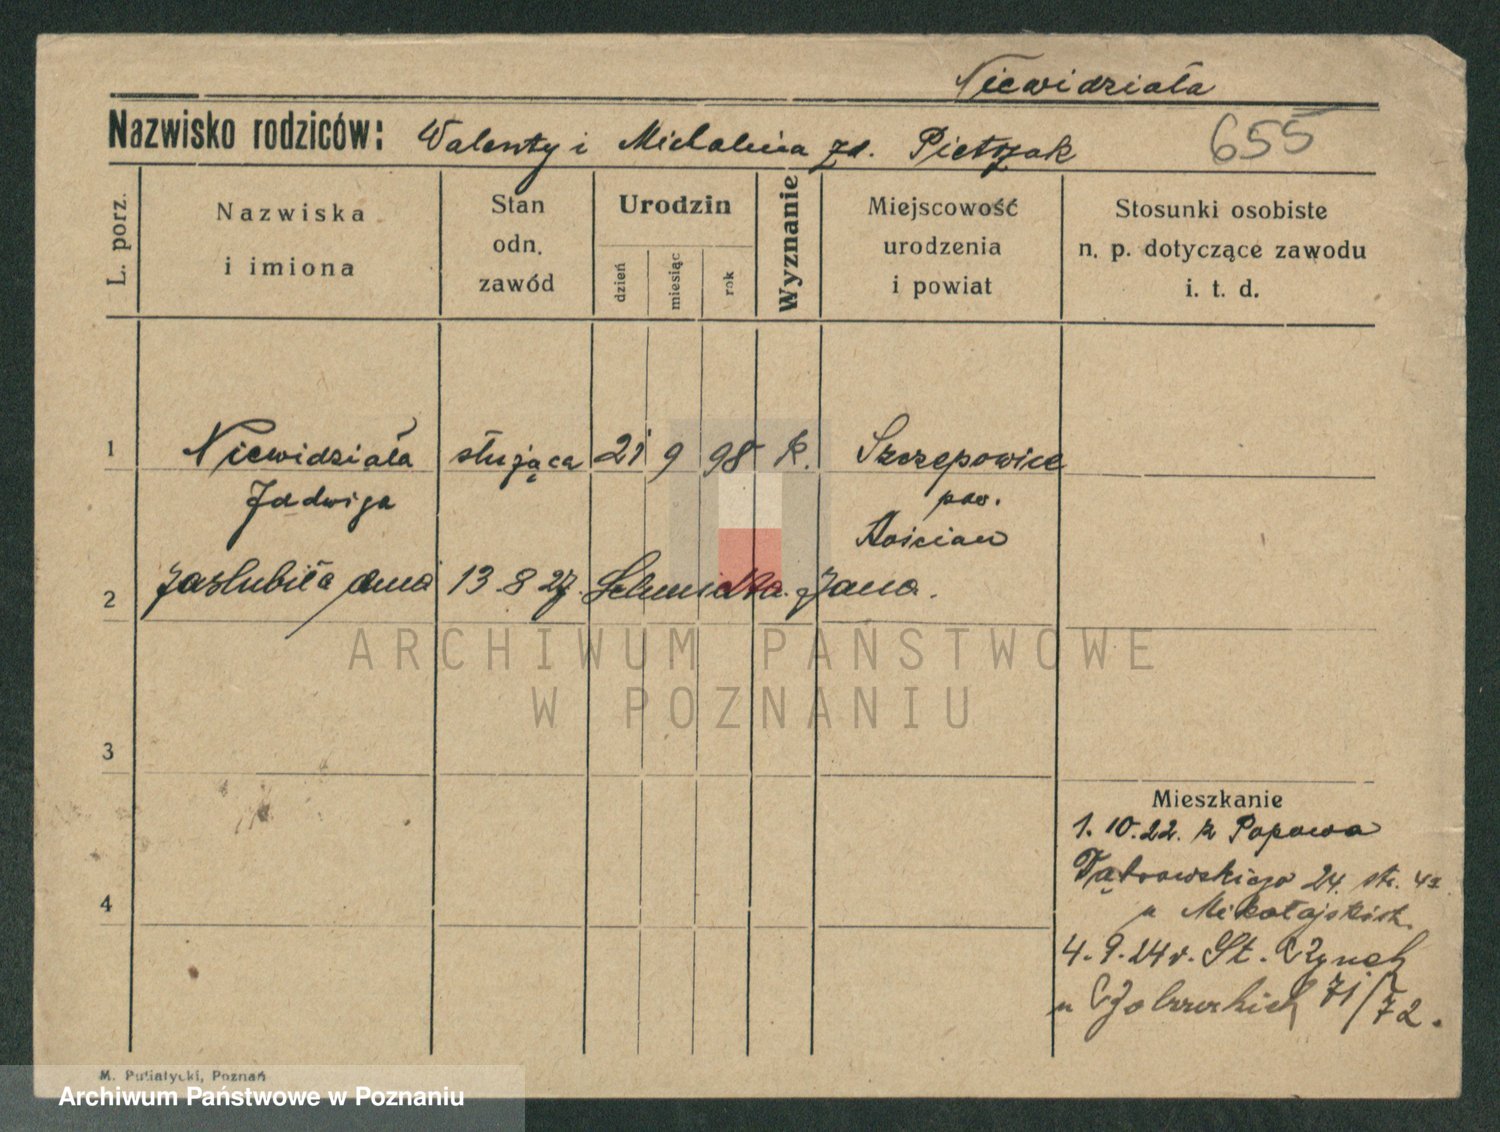 Niewidziała
Nazwisko rodziców: Walenty i Michalina zd. Pietrzak 655
L. porz.
Nazwiska
i imiona
Stan
odn.
zawód
Urodzin
dzień
miesiąc
rok
Wyznanie
Miejscowość
urodzenia
i powiat
Stosunki osobiste
n. p. dotyczące zawodu
i. t. d.
1 Niewidziała służąca 21 9 98 k. Szczepowice
Jadwiga pow.
Kościan
2 zaslubiła dnia 13.8.27. Schmidta Jana.
ARCHIWUM PAŃSTWOWE
W POZNANIU
3
Mieszkanie
1.10.22. z Popowa
Dąbrowskiego 24. str. 42
4 u Mikołajskich.
4.9.24 r. St. Rynek
u 71/72.
M. Putiatycki, Poznań
Archiwum Państwowe w Poznaniu